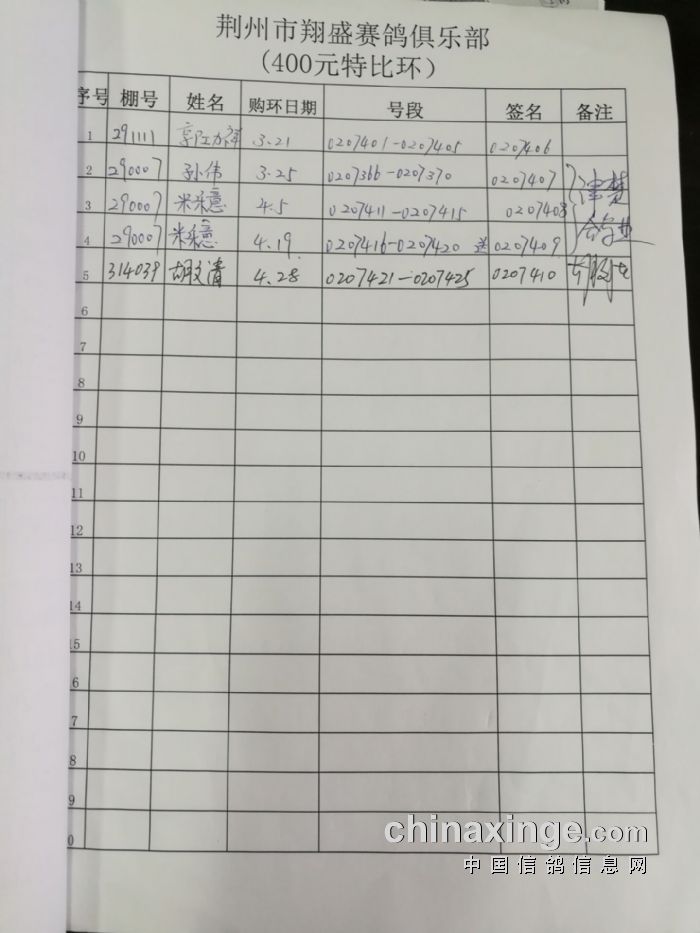 荆州市翔盛赛鸽俱乐部
(400元特比环)
序号 棚号 姓名 购环日期 号段 签名 备注
1 291111 3.21 0207401-0207405 0207406
2 290007 孙伟 3.25 0207366-0207370 0207407
3 290007 4.5 0207411-0207415 0207408
4 290007 4.19 0207416-0207420 送 0207409
5 314039 胡文清 4.28 0207421-0207425 0207410
6
7
8
9
10
11
12
13
14
15
6
7
8
9
0
chinaxinge.com
中国信鸽信息网